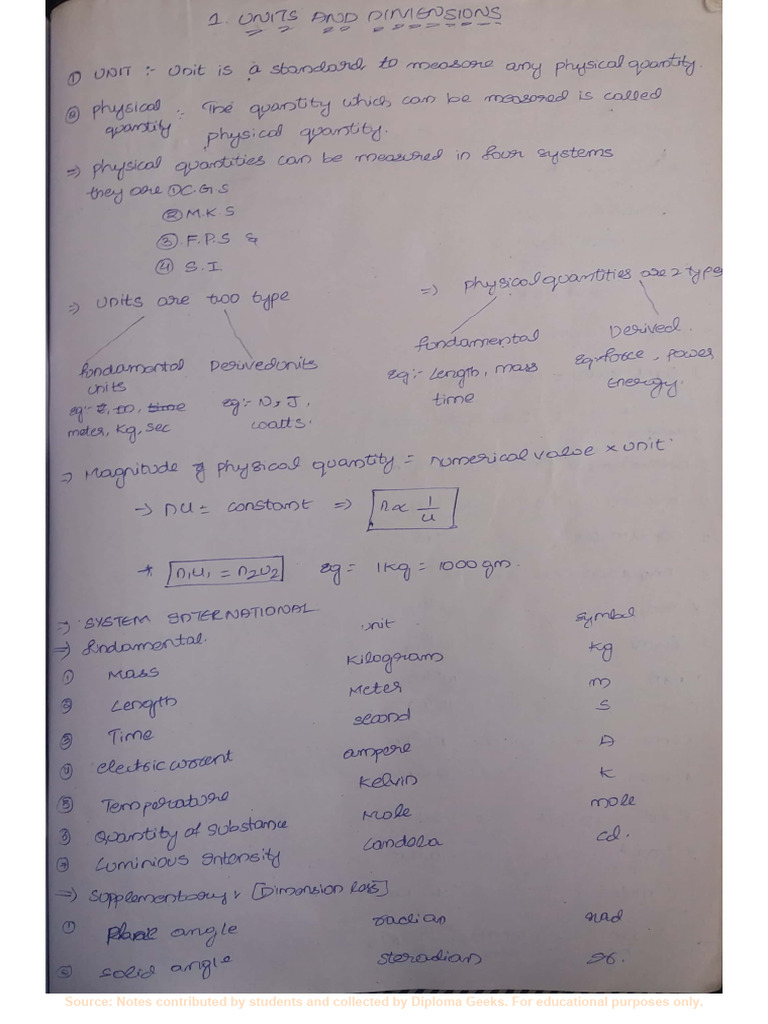 1. UNITS AND DIMENSIONS
① UNIT :- Unit is a standard to measure any physical quantity.
② physical quantity : The quantity which can be measured is called
physical quantity.
⇒ physical quantities can be measured in four systems
they are ① C.G.S
② M.K.S
③ F.P.S &
④ S.I.
⇒ Units are two type
⇒ physical quantities are 2 types
fundamental units
Derived units
eg:- meter, kg, sec
eg:- N, J, watts.
fundamental
Derived.
eg:- Length, mass
time
Eg:- force, power
Energy.
⇒ Magnitude of physical quantity = numerical value × unit
→ nu = constant ⇒ n ∝ 1/u
* n₁u₁ = n₂u₂ Eg = 1kg = 1000gm.
⇒ SYSTEM INTERNATIONAL
⇒ fundamental. unit symbol
① Mass Kilogram kg
② Length Meter m
③ Time second s
④ electric current ampere A
⑤ Temperature Kelvin K
⑥ Quantity of substance Mole mole
⑦ Luminious Intensity Candela cd.
⇒ Supplementary : [Dimension less]
① Plane angle radian rad
② solid angle steradian sr.
Source: Notes contributed by students and collected by Diploma Geeks. For educational purposes only.